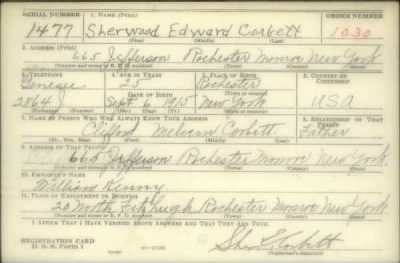 SERIAL NUMBER 1. NAME (Print) ORDER NUMBER
1477 Sherwood Edward Corbett 1030
(First) (Middle) (Last)
2. ADDRESS (Print)
665 Jefferson Rochester Monroe New York
(Number and street or R. F. D. number) (Town) (County) (State)
3. TELEPHONE 4. AGE IN YEARS 5. PLACE OF BIRTH 6. COUNTRY OF CITIZENSHIP
Genesee 25 Rochester
2864 J Sept. 6, 1915 New York USA
7. NAME OF PERSON WHO WILL ALWAYS KNOW YOUR ADDRESS 8. RELATIONSHIP OF THAT PERSON
Clifford Melvin Corbett Father
(Mr., Mrs., Miss) (First) (Middle) (Last)
9. ADDRESS OF THAT PERSON
665 Jefferson Rochester Monroe New York
(Number and street or R. F. D. number) (Town) (County) (State)
10. EMPLOYER'S NAME
William Kenny
11. PLACE OF EMPLOYMENT OR BUSINESS
20 North Fitzhugh Rochester Monroe New York
(Number and street or R. F. D. number) (Town) (County) (State)
I AFFIRM THAT I HAVE VERIFIED ABOVE ANSWERS AND THAT THEY ARE TRUE.
REGISTRATION CARD
D. S. S. Form 1 Corbett
(Registrant's signature)